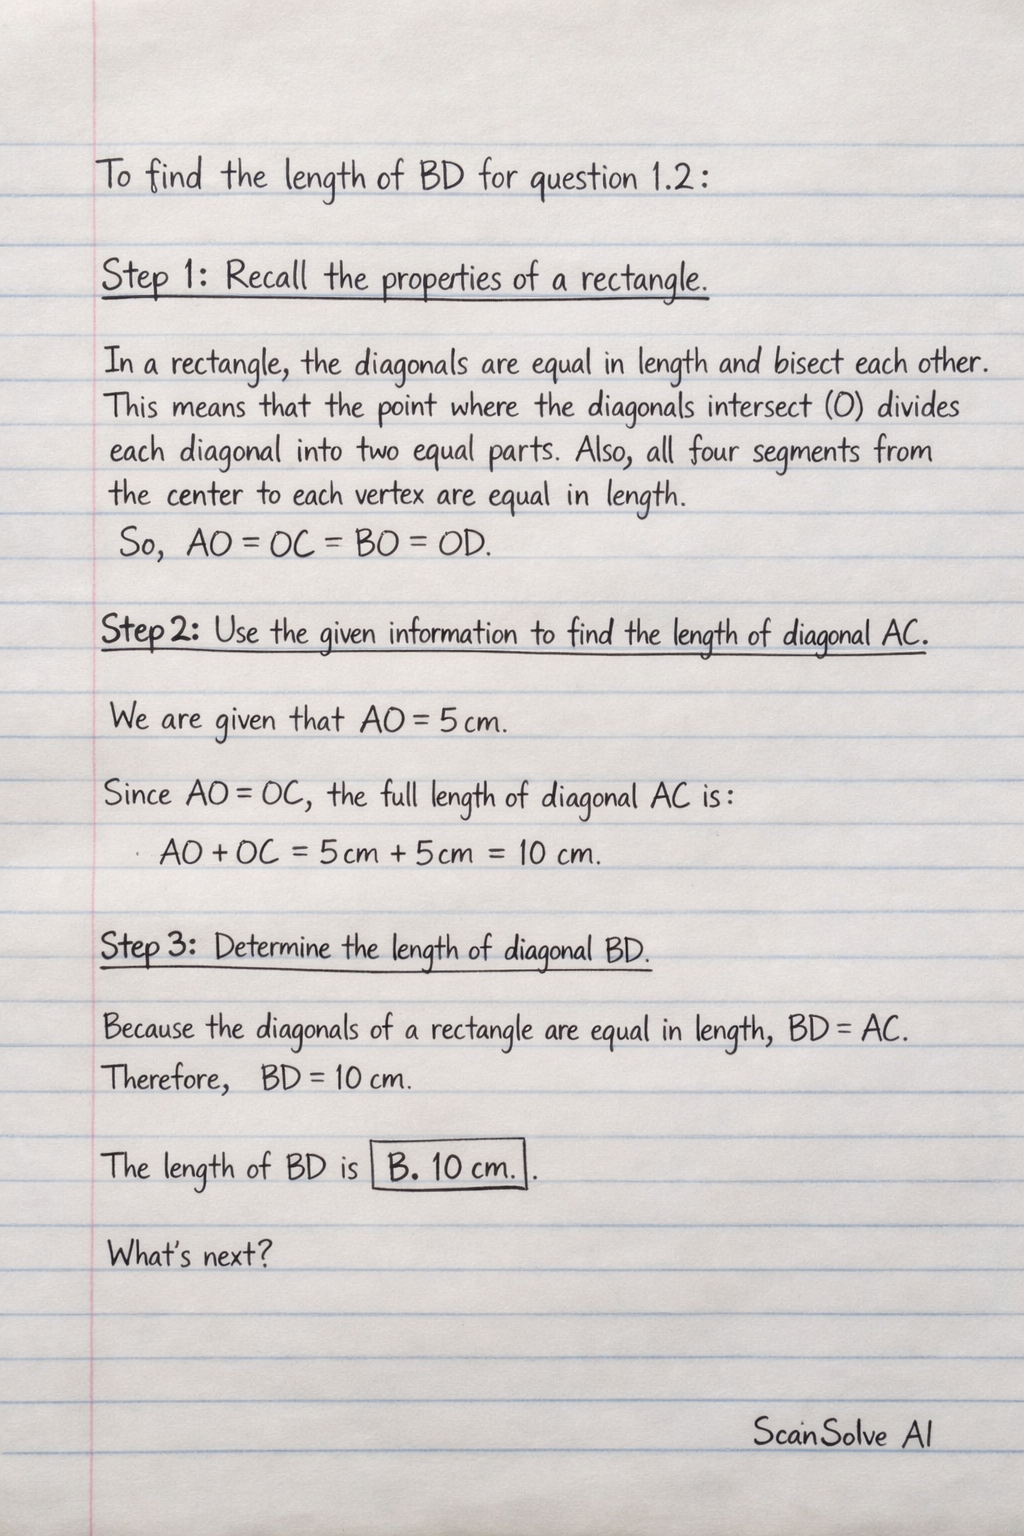 To find the length of BD for question 1.2:
Step 1: Recall the properties of a rectangle.
In a rectangle, the diagonals are equal in length and bisect each other.
This means that the point where the diagonals intersect (O) divides
each diagonal into two equal parts. Also, all four segments from
the center to each vertex are equal in length.
So, AO = OC = BO = OD.
Step 2: Use the given information to find the length of diagonal AC.
We are given that AO = 5 cm.
Since AO = OC, the full length of diagonal AC is:
AO + OC = 5 cm + 5 cm = 10 cm.
Step 3: Determine the length of diagonal BD.
Because the diagonals of a rectangle are equal in length, BD = AC.
Therefore, BD = 10 cm.
The length of BD is B. 10 cm. .
What's next?
ScanSolve AI